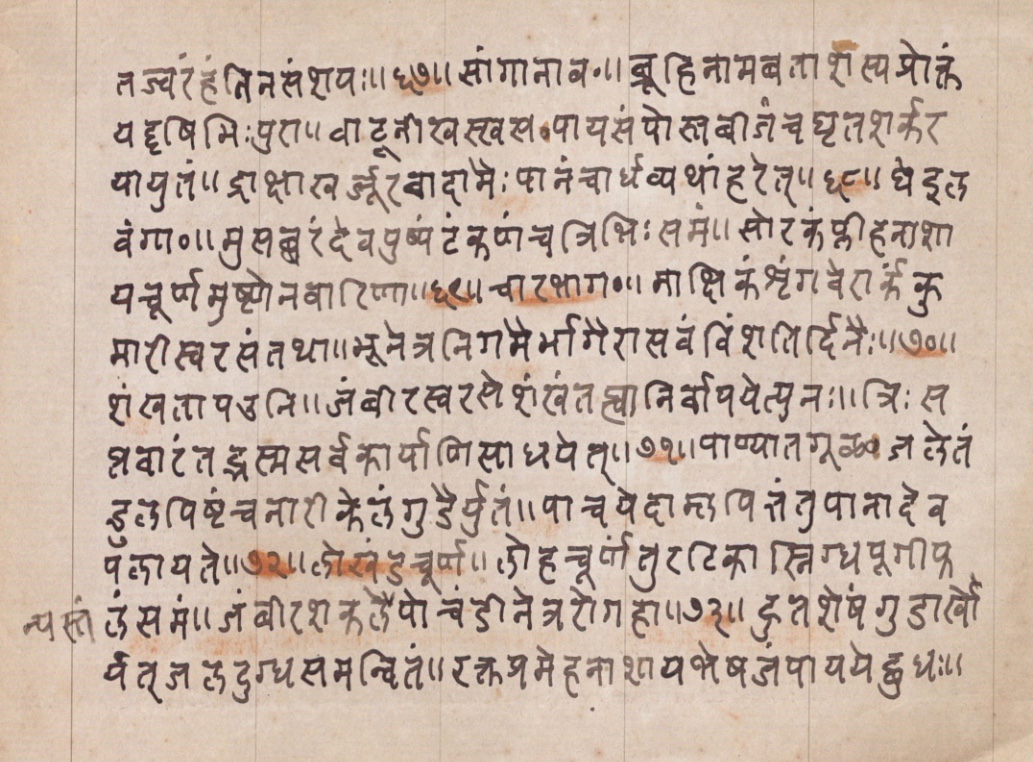 तज्वरंहंतिनसंशयः॥६७॥ सांगानाव०॥ ब्रूहिनामबताशस्यप्रोक्तं
यदृषिभिःपुरा॥ वाटूनीखसखस०पायसंपोस्तबीजंचघृतशर्कर
यायुतं॥ द्राक्षाखर्जूरबादामैःपानंचार्धव्यथांहरेत्॥६८॥ घेइल
वंगा०॥ मुसब्बरंदेवपुष्पंटंकणंचत्रिभिःसमं॥ सोरकंप्लीहनाशा
यचूर्णमुष्णेनवारिणा॥६९॥ चारभाग०॥ माक्षिकंशृंगवेरार्ककु
मारीस्वरसंतथा॥ भूनेत्रनिगमैर्भागैरासवंविंशतिर्दिनैः॥७०॥
शंखतापउनि॥ जंबीरस्वरसेशंखंतप्त्वानिर्वापयेत्पुनः॥ त्रिःस
प्तवारंतद्भस्मसर्वकार्याणिसाधयेत्॥७१॥ पाण्यातगूळ० जलेतं
डुलपिष्टंचनारीकेलंगुडैर्युतं॥ पाचयेदाम्लपित्तंतुपानादेव
पलायते॥७२॥ लोखंडचूर्ण॥ लोहचूर्णंतुरटिकास्निग्धपूगीफ
लंसमं॥ जंबीरशकलैर्पोचंडीनेत्ररोगहा॥७३॥ द्रुतशेषंगुडार्खो
न्यस्तं
र्यत्जलदुग्धसमन्वितं॥ रक्तप्रमेहनाशायभेषजंपाययेद्बुधः॥